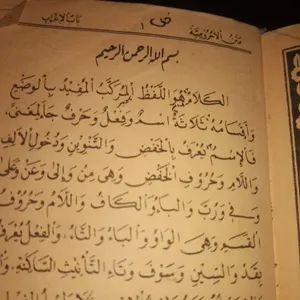 متن الاجرومية
ص ١
باب الإعراب
بسم الله الرحمن الرحيم
الكَلَامُ هُوَ اللَّفْظُ المُرَكَّبُ المُفِيْدُ بِالْوَضْعِ
وَأَقْسَامُهُ ثَلَاثَةٌ اِسْمٌ وَفِعْلٌ وَحَرْفٌ جَاءَ لِمَعْنًى
فَالاِسْمُ يُعْرَفُ بِالْخَفْضِ وَالتَّنْوِيْنِ وَدُخُوْلِ الْأَلِفِ
وَاللَّامِ وَحُرُوْفِ الْخَفْضِ وَهِيَ مِنْ وَإِلَى وَعَنْ وَعَلَى
وَفِيْ وَرُبَّ وَالْبَاءُ وَالْكَافُ وَاللَّامُ وَحُرُوْفُ
الْقَسَمِ وَهِيَ الْوَاوُ وَالْبَاءُ وَالتَّاءُ، وَالْفِعْلُ يُعْرَفُ
بِقَدْ وَالسِّيْنِ وَسَوْفَ وَتَاءِ التَّأْنِيْثِ السَّاكِنَةِ،